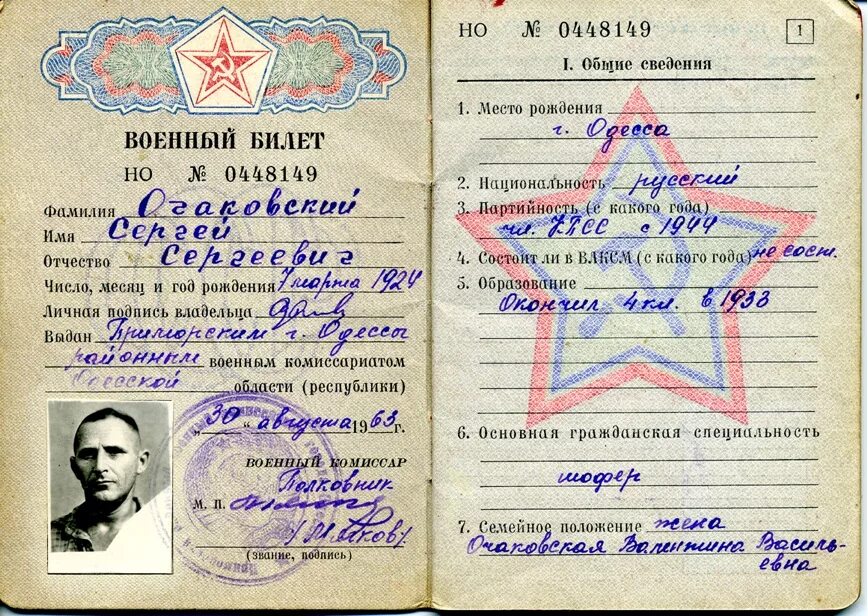 ВОЕННЫЙ БИЛЕТ
НО № 0448149
Фамилия Очаковский
Имя Сергей
Отчество Сергеевич
Число, месяц и год рождения 7 марта 1924
Личная подпись владельца
Выдан Приморским г. Одессы
районным военным комиссариатом
Одесской области (республики)
„30“ августа 1963 г.
ВОЕННЫЙ КОМИССАР
Полковник
М. П.
(звание, подпись)
НО № 0448149
1
I. Общие сведения
1. Место рождения
г. Одесса
2. Национальность русский
3. Партийность (с какого года)
чл. КПСС с 1944
4. Состоит ли в ВЛКСМ (с какого года) не сост.
5. Образование
Окончил 4 кл. в 1933
6. Основная гражданская специальность
шофер
7. Семейное положение жена
Очаковская Валентина Василь-
евна